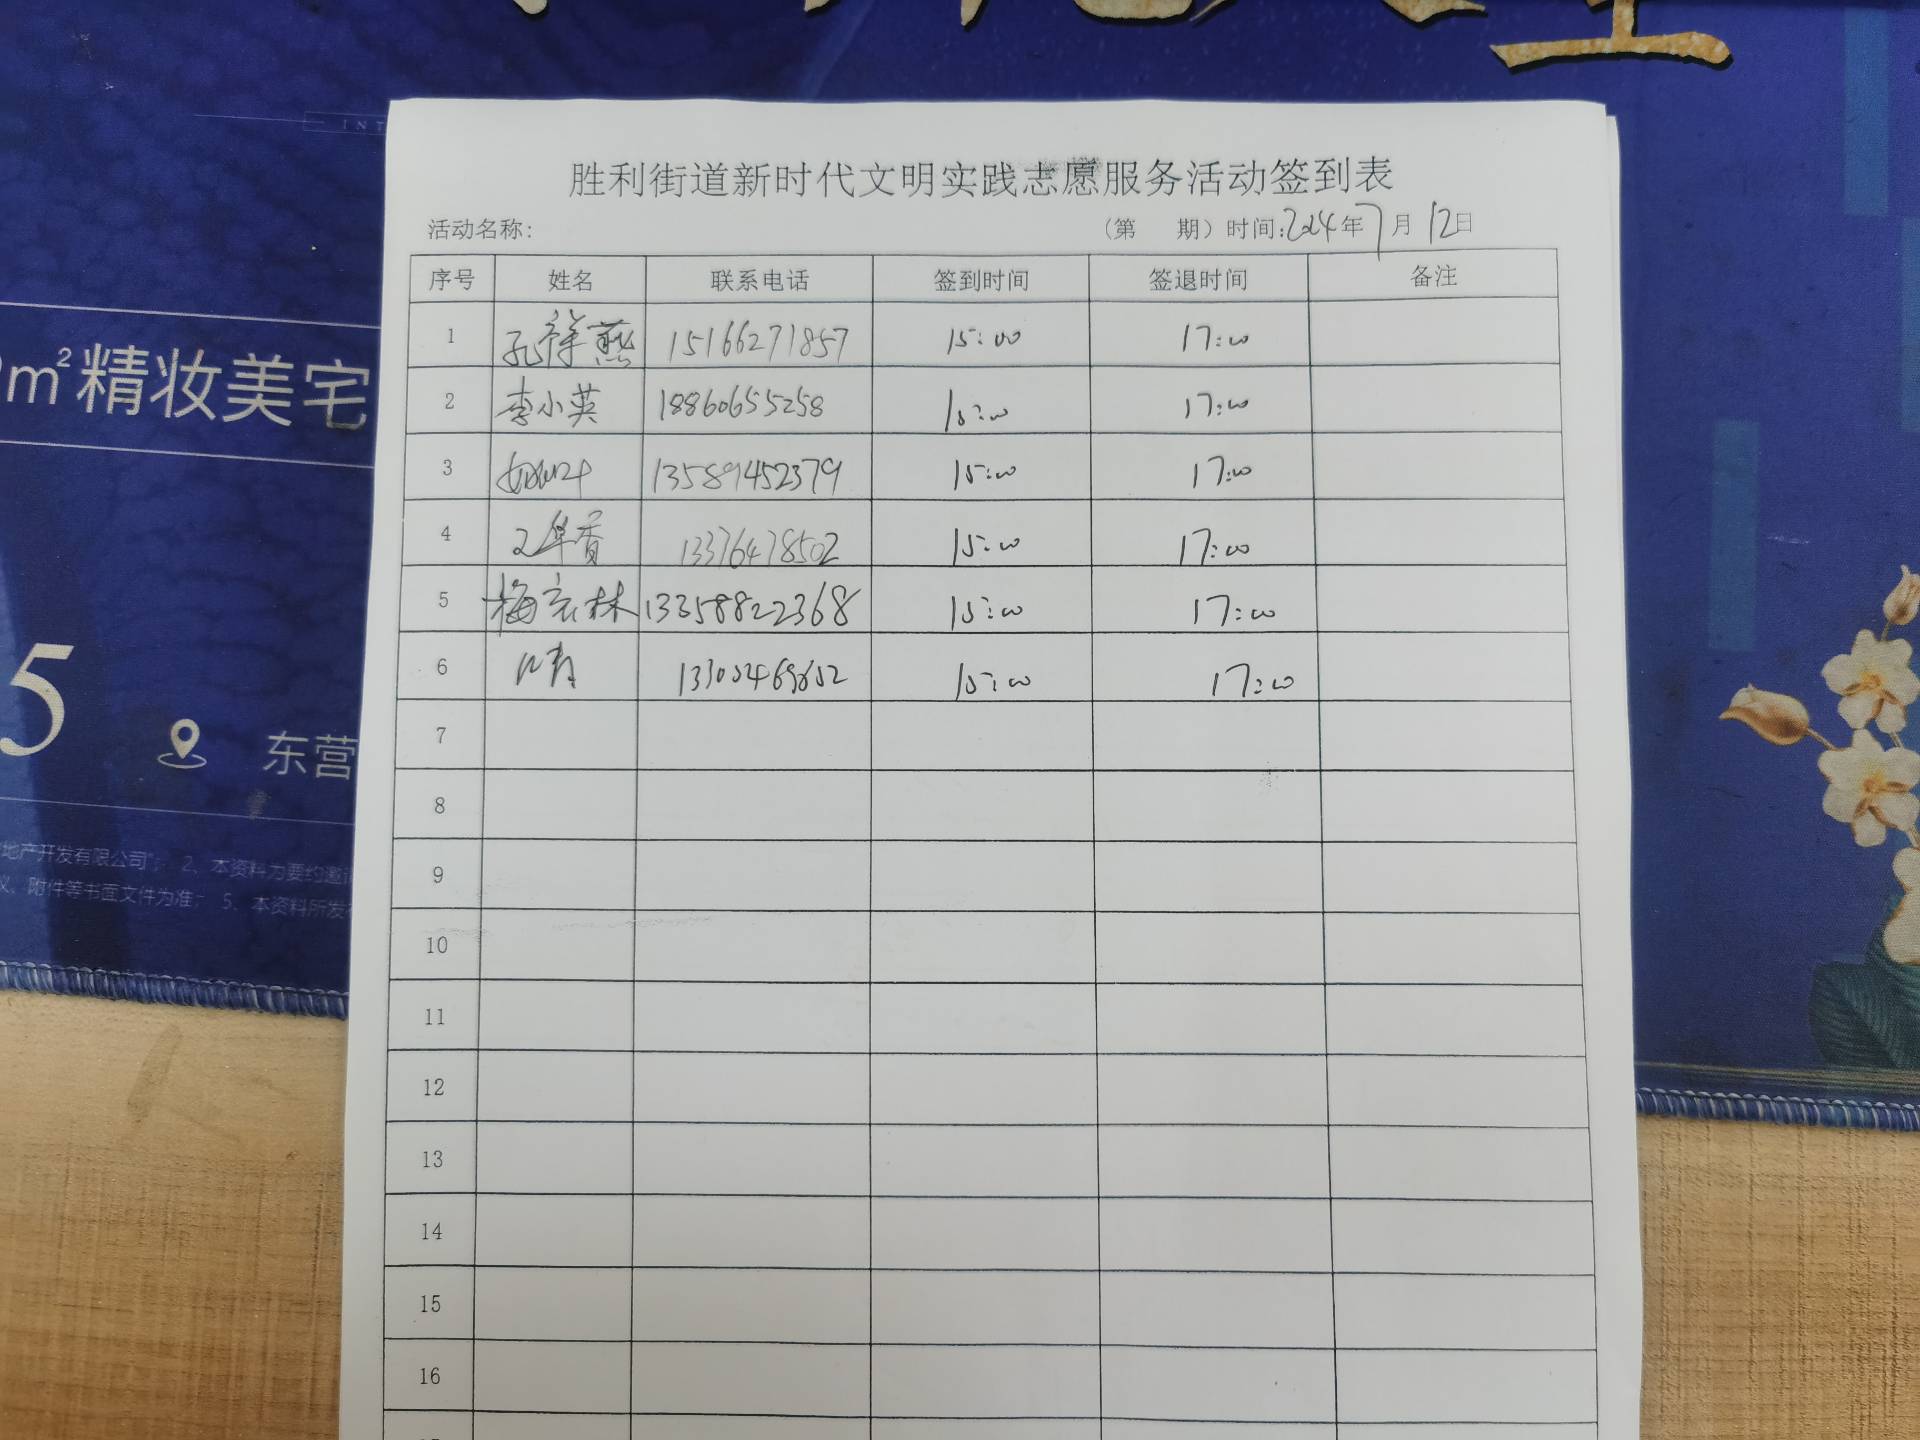 INT
m²精妆美宅
5
东营
地产开发有限公司"; 2、本资料为要约邀
议、附件等书面文件为准; 5、本资料所发
胜利街道新时代文明实践志愿服务活动签到表
活动名称: (第 期) 时间:2024年7月12日
序号 姓名 联系电话 签到时间 签退时间 备注
1 孔祥燕 15166271857 15:00 17:00
2 李小英 18860655258 15:00 17:00
3 13589452379 15:00 17:00
4 13376478502 15:00 17:00
5 梅宏林 13358822368 15:00 17:00
6 15:00 17:00
7
8
9
10
11
12
13
14
15
16